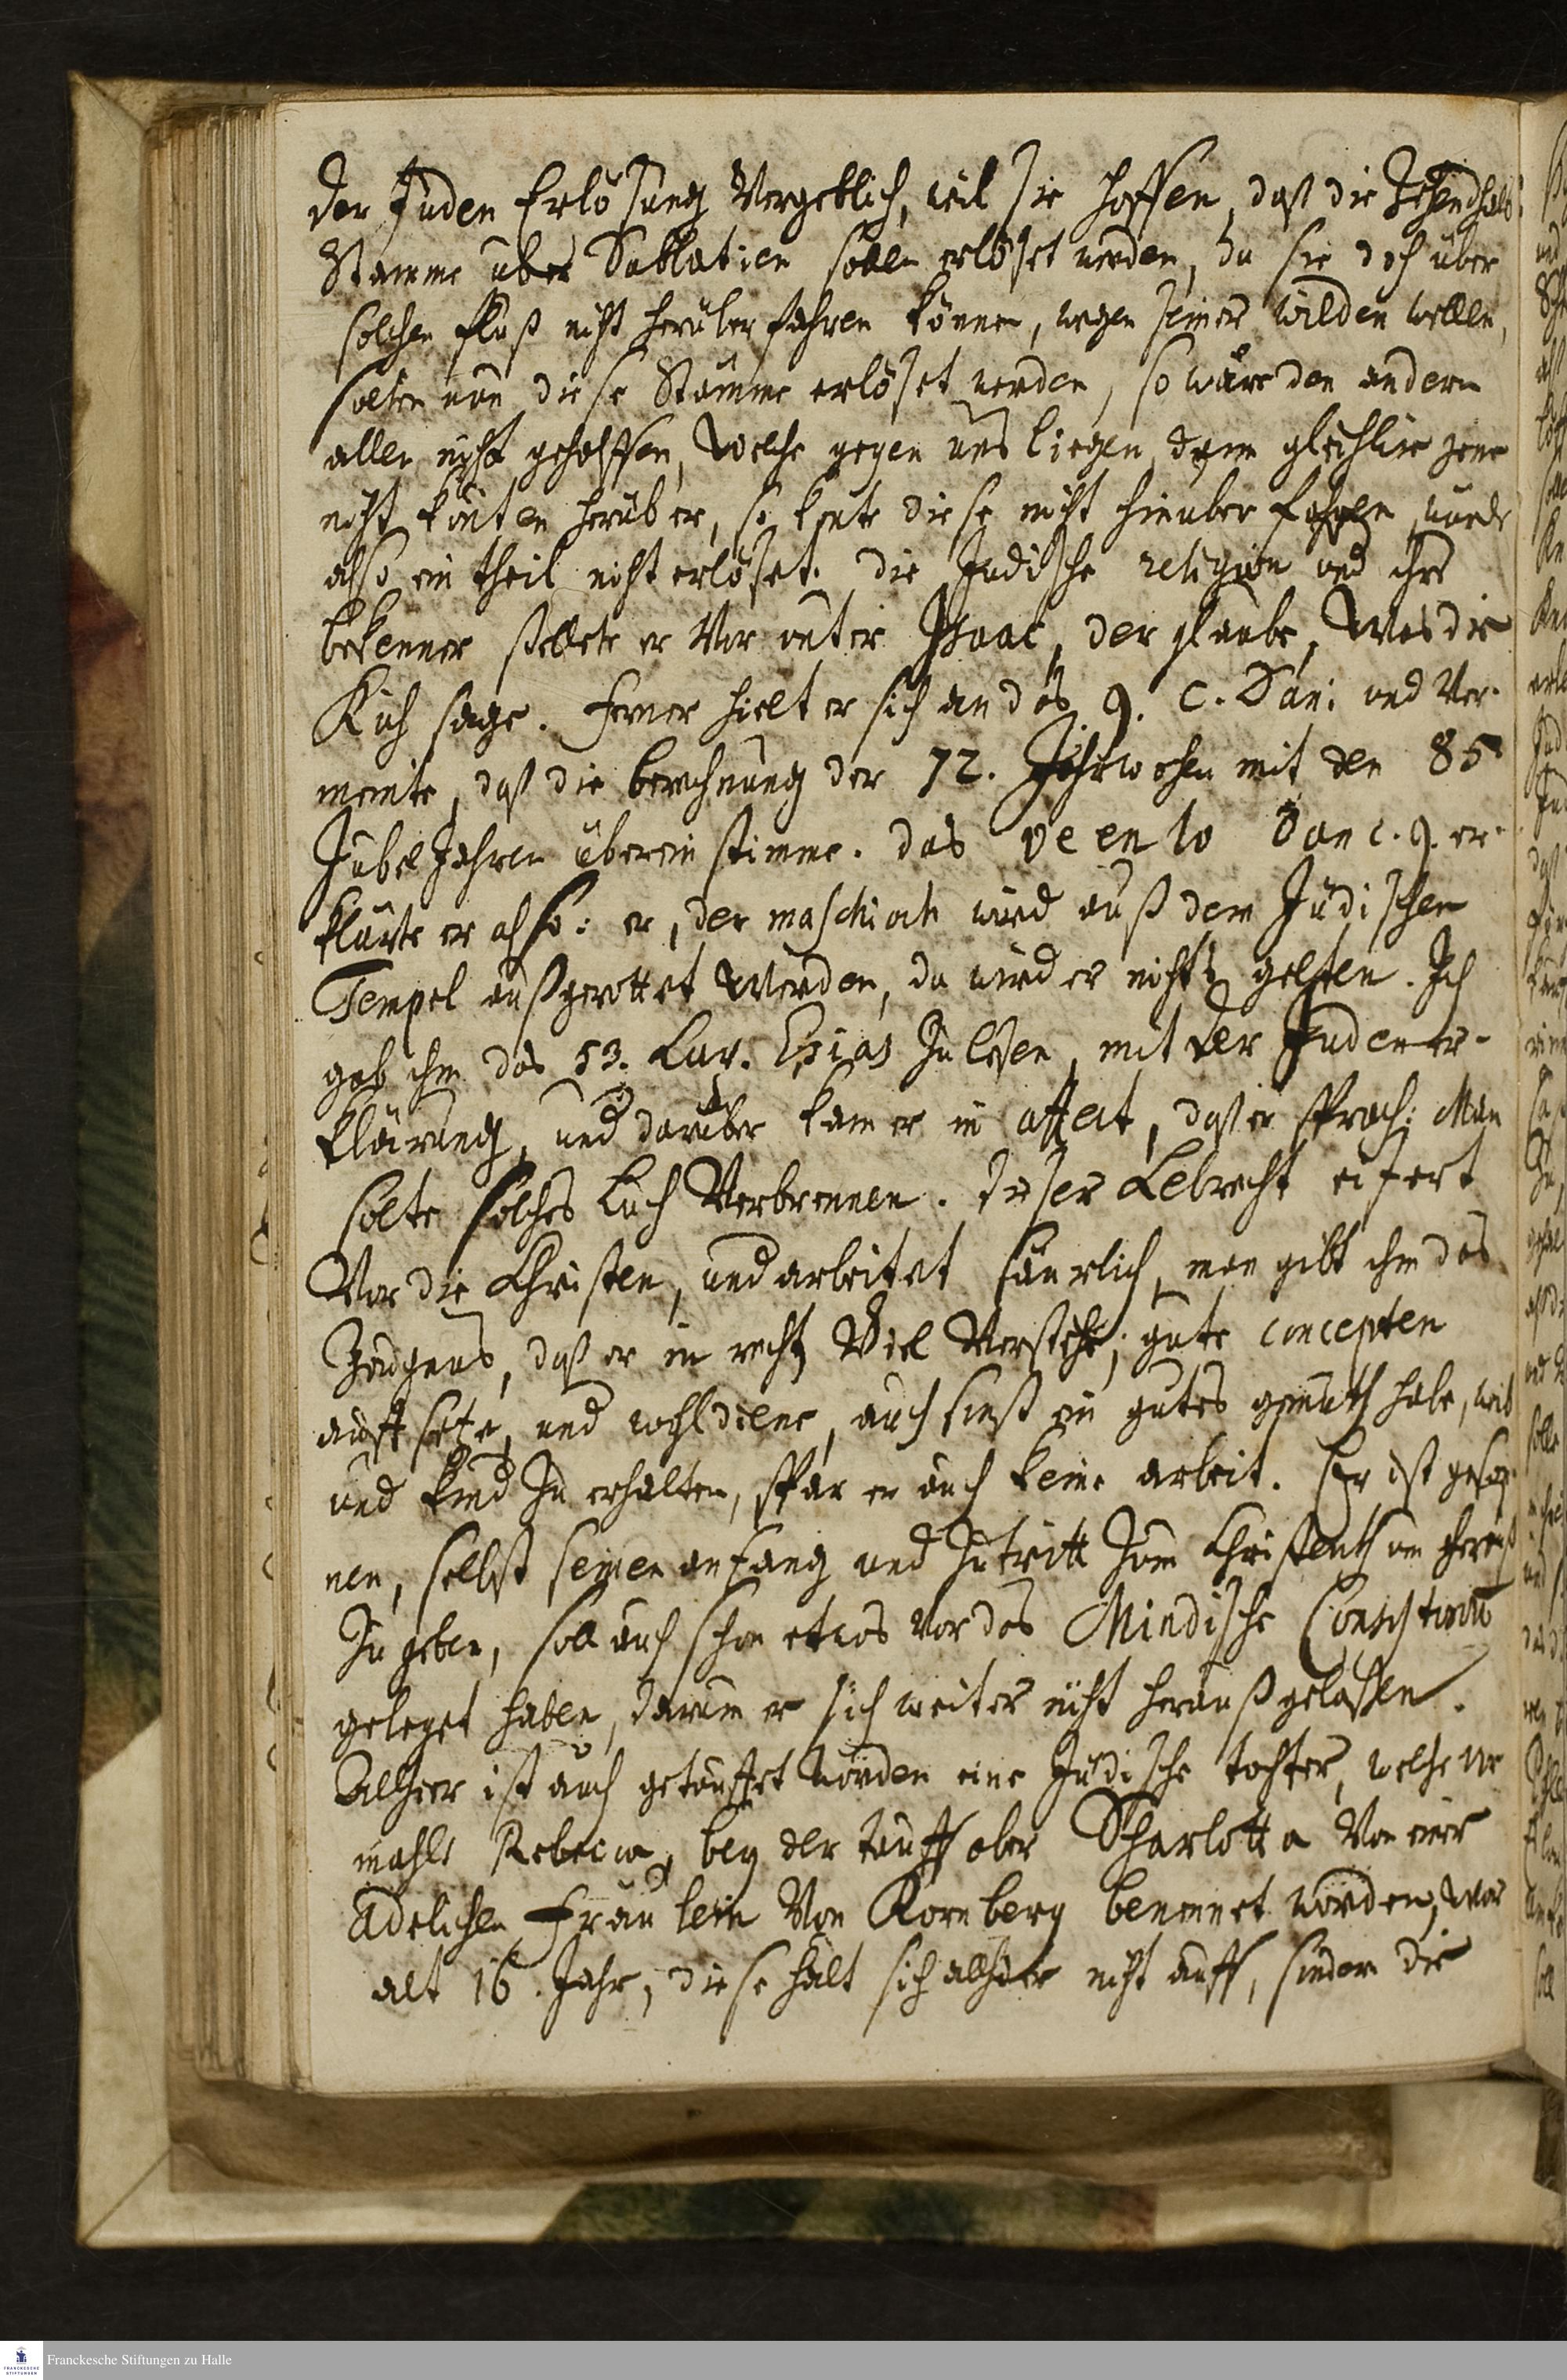 der Juden Erlösung Vergeblich, weil sie hoffen, daß die Zehendhalb
Stämme über Sabbatien sollen erlöset werden, da sie doch über
solchen fluß nicht herüber fahren können, wegen seiner wilden wellen,
solten nun diese Stämme erlöset werden, so wäre den andern
allen nicht geholffen, Welche gegen uns liegen, denn gleichwie jene
nicht könten herüber, so könte diese nicht hinüber fahren, würde
also ein theil nicht erlöset. die Jüdische religion und ihre
bekenner stellete er Vor unter Isaac, der glaube, Was die
Kuh sage. ferner hielt er sich an das 9. C. Dan: und Ver-
meinte, daß die berechnung der 72. Jahrwochen mit den 85
Jubel Jahren überein stimme. das veen lo Dan c. 9. er-
klärte er also: er, der maschiach wird auß dem Jüdischen
Tempel außgerottet Werden, da wird er nichts gelten. Ich
gab ihm das 53. Cap. Esias zu lesen, mit der Juden er-
klärung, und darüber kam er in affect, daß er sprach: Man
solte solches buch Verbrennen. dieser Lebrecht eifert
Vor die Christen, und arbeitet säurlich, man gibt ihm das
Zeugnus, daß er in rechts Viel Verstehe, gute concepten
auffsetze, und wohl diene, auch sonst ein gutes gemüth habe, weib
und kind zu erhalten, spar er auch keine arbeit. Er ist geson-
nen, selbst seinen anfang und zutritt zum Christenthum herauß
zu geben, soll auch schon etwas vor das Mindische Consistorium
geleget haben, darum er sich weiter nicht heraußgelassen.
Allhier ist auch getäuffet worden eine Jüdische tochter, welche vor
mahls Rebecca, bey der tauff aber Scharlotta Von einer
Adelichen Fräulein Von Kornberg benennet worden, war
alt 16. Jahr, diese hält sich allhier nicht auff, sondern die
Franckesche Stiftungen zu Halle